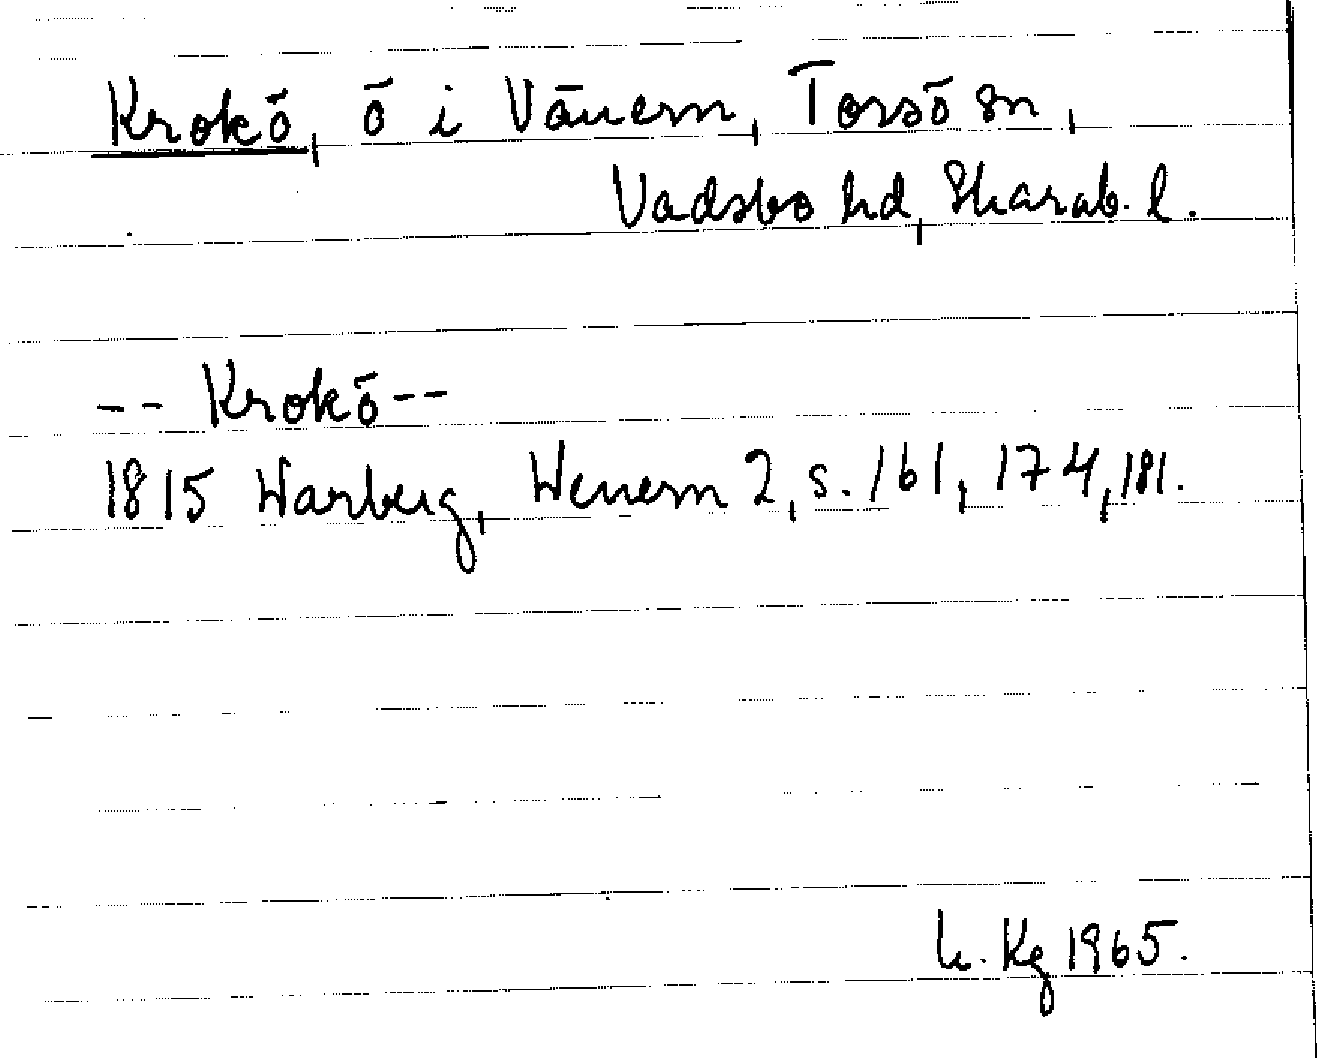 Krokö, ö i Vänern, Torsö sn,
Vadsbo hd, Skarab. l.
-- Krokö --
1815 Warberg, Wenern 2, s. 161, 174, 181.
Kg 1965.